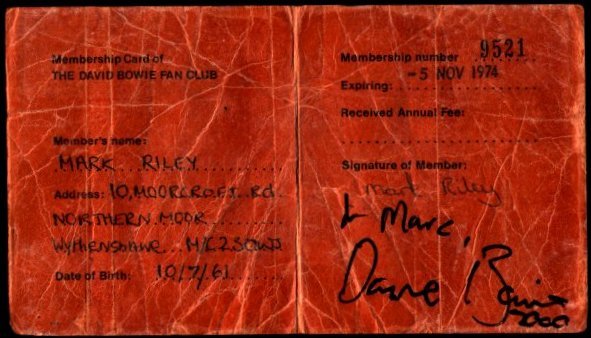 Membership Card of
THE DAVID BOWIE FAN CLUB
Member's name:
MARK RILEY
Address: 10, MOORCROFT Rd
NORTHERN MOOR
Wythenshawe M/C
Date of Birth: 10/7/61
Membership number 9521
Expiring: -5 NOV 1974
Received Annual Fee:
Signature of Member:
Mark Riley
Marc,
Bowie